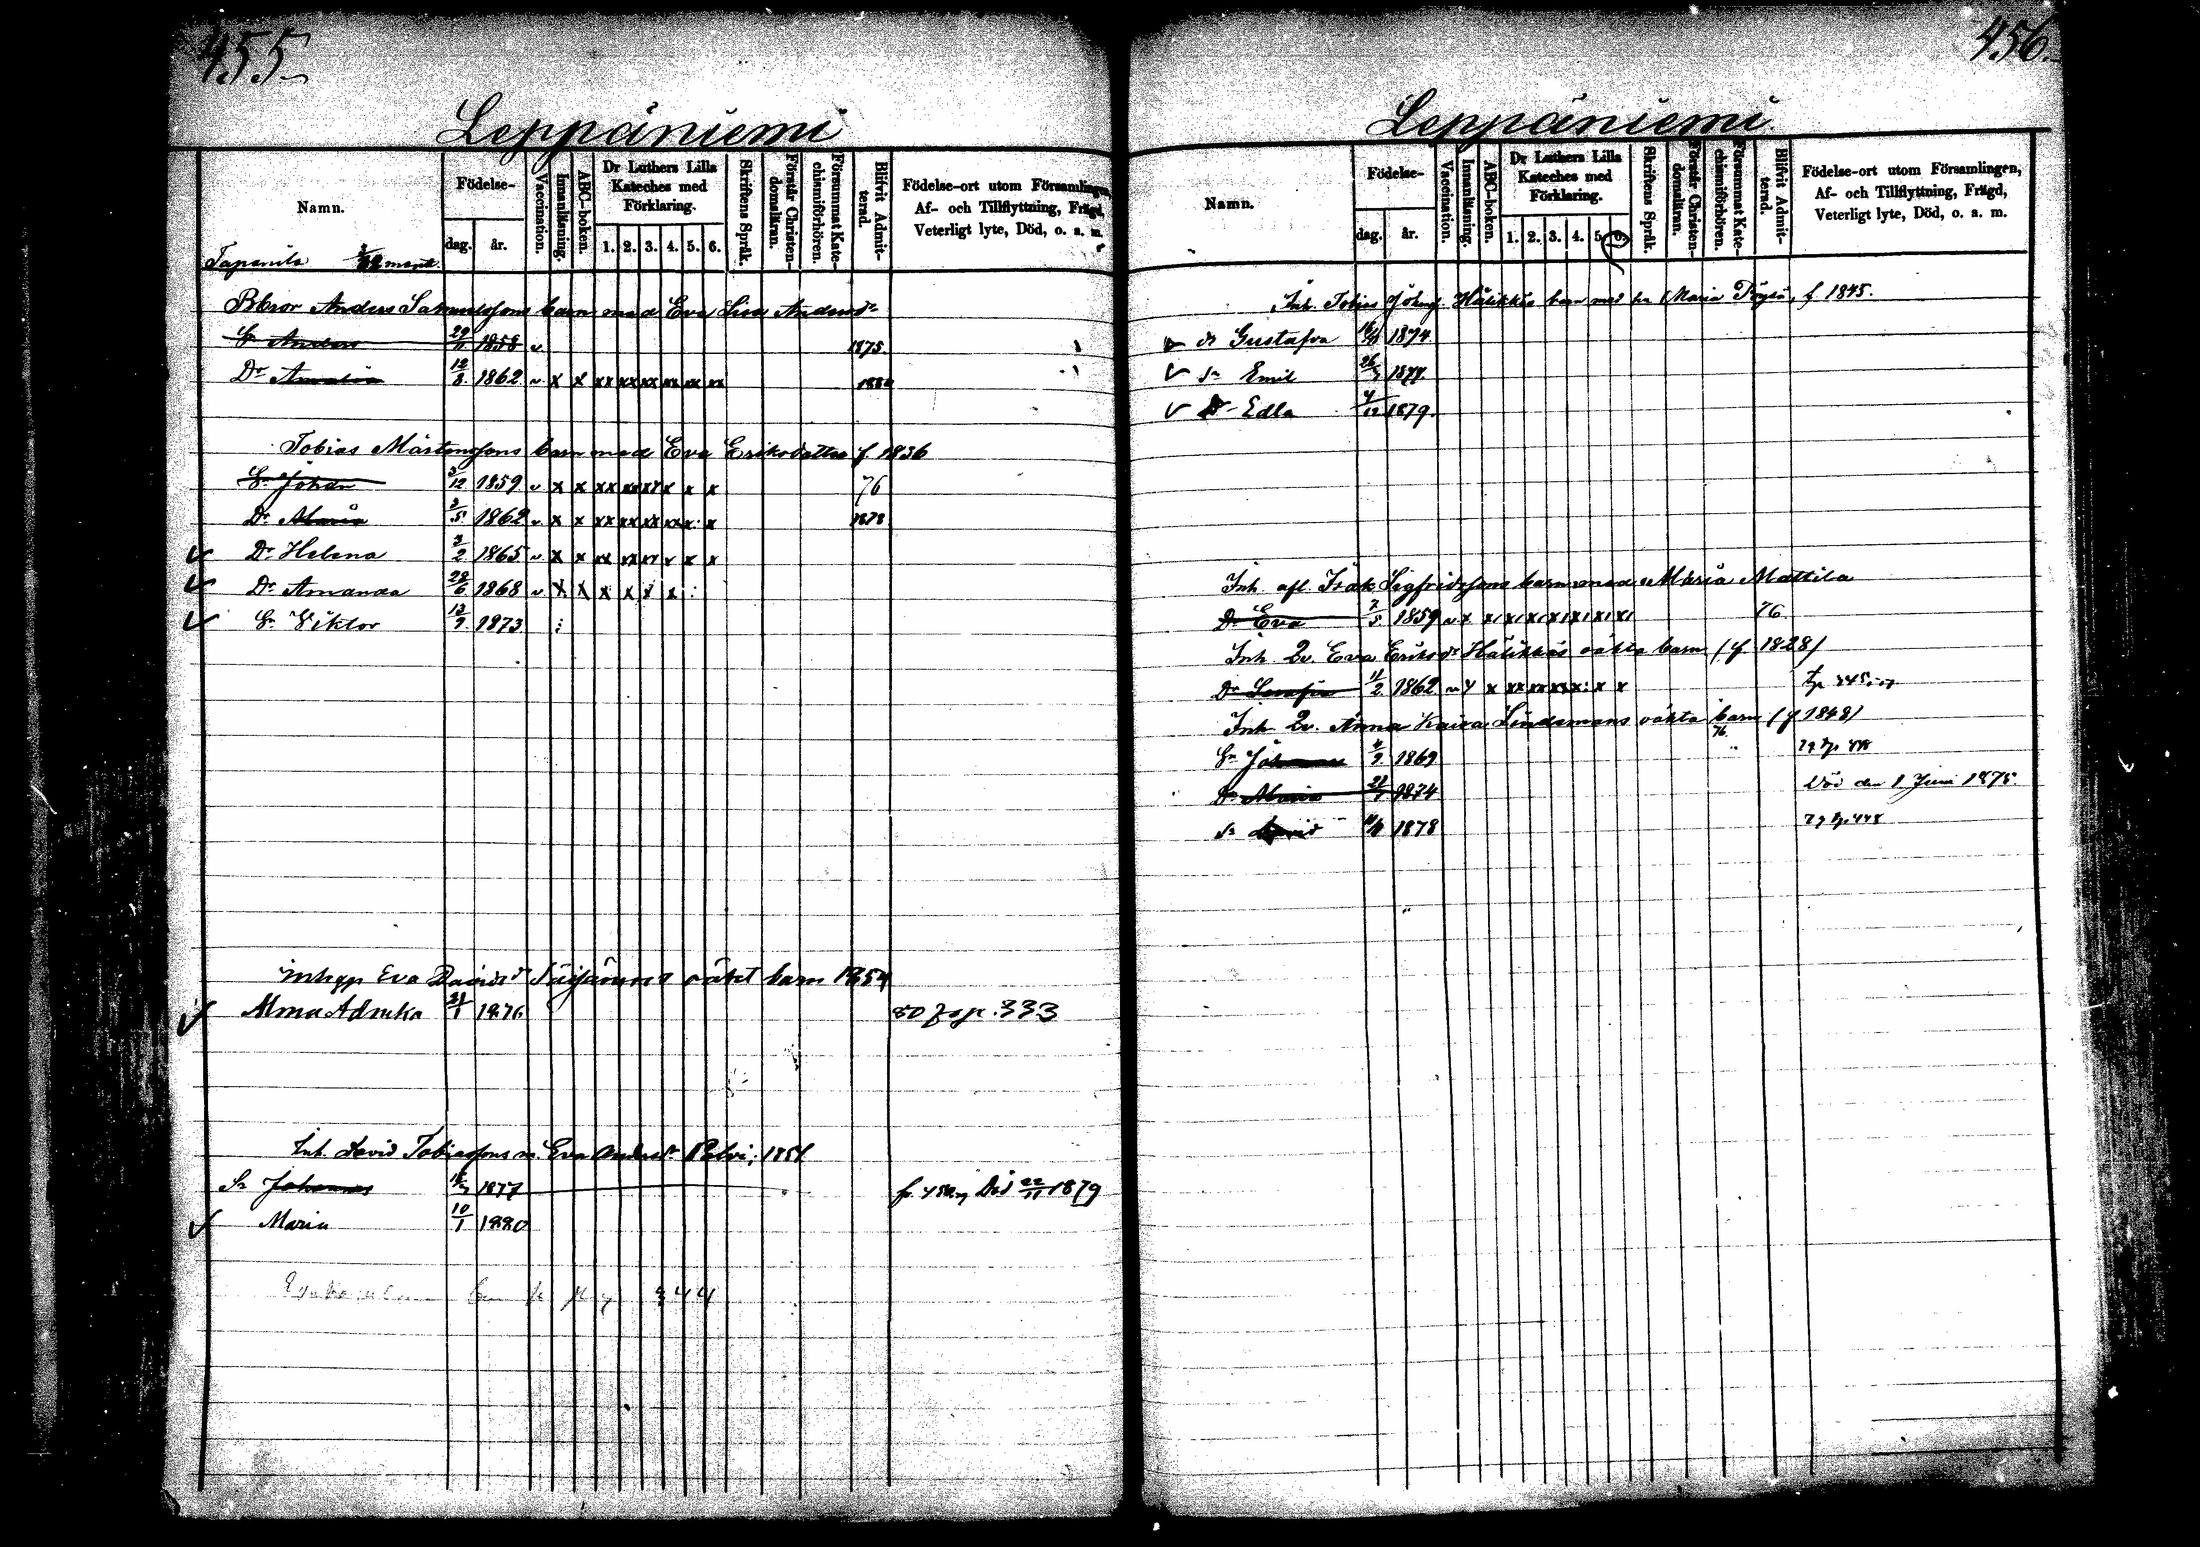 455
Leppäniemi
Namn.
Födelse-
dag.
år.
Vaccination.
Innanläsning.
ABC-boken.
Dr Luthers Lilla
Kateches med
Förklaring.
1. 2. 3. 4. 5. 6.
Skriftens Språk.
Förstår Christen-
domsläran.
Försummat Kate-
chismiförhören.
Blifvit Admit-
terad.
Födelse-ort utom Församlingen,
Af- och Tillflyttning, Frägd,
Veterligt lyte, Död, o. a. m.
Tapanila mant.
Anders Samuelssons barn med Eva Lisa Andersdr
Sn Anders 29/11 1858 v 1875.
Dr Amalia 12/8 1862 v x x xx xx xx xx xx xx 1880
Tobias Mårtenssons barn med Eva Eriksdotter f 1836
Sn Johan 3/12 1859 v x x xx xx xx x x x 76
Dr Maria 3/5 1862 v x x xx xx xx xx x x 1878
Dr Helena 3/2 1865 v x x xx xx xx x x x
Dr Amanda 28/6 1868 v x x x x x x
Sn Viktor 13/9 1873
Inhyp Eva Davidsdr oäkt barn 1854
Alma Adrika 21/1 1876 333
Inh. David Tobiassons m. Eva Andersdr 1851
Sn Johannes 1877 Död 22/11 1879
Maria 10/1 1880
344
456.
Leppäniemi
Namn.
Födelse-
dag.
år.
Vaccination.
Innanläsning.
ABC-boken.
Dr Luthers Lilla
Kateches med
Förklaring.
1. 2. 3. 4. 5. 6.
Skriftens Språk.
Förstår Christen-
domsläran.
Försummat Kate-
chismiförhören.
Blifvit Admit-
terad.
Födelse-ort utom Församlingen,
Af- och Tillflyttning, Frägd,
Veterligt lyte, Död, o. a. m.
Inh. Tobias Johns. Hälikkäs barn med Maria f 1845.
dr Gustafva 1874
Sn Emil 1877
Dr Edla 4/12 1879.
Inh. afl. Isak Sigfridssons barn med Maria Mattila
Dr Eva 7/5 1859 76
Inh. Qv. Eva Eriksdr Hälikkäs oäkta barn (f 1828)
Dr Serafia 11/2 1862
Inh. Qv. Anna Kaisa Lindemans oäkta barn (f 1848)
Sn Johannes 4/9 1869
Dr Maria 1874 Död den 1 Juni 1875.
Sn David 1878